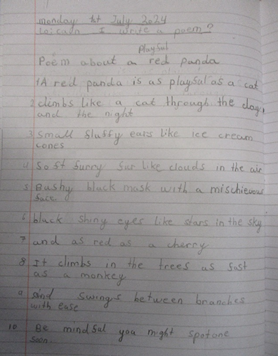 monday 1st July 2024
Lo: can I write a poem?
playful
Poem about a red panda
1 A red panda is as playful as a cat
2 climbs like a cat through the day
and the night
3 small fluffy ears like ice cream
cones
4 So st furry fur like clouds in the air
5 Bushy black mask with a mischievous
face
6 black shiny eyes like stars in the sky
7 and as red as a cherry
8 It climbs in the trees as fast
as a monkey
9 and swings between branches
with ease
10 Be mindful you might spot one
soon